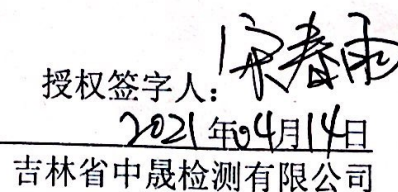 授权签字人：宋春雨
2021年04月14日
吉林省中晟检测有限公司